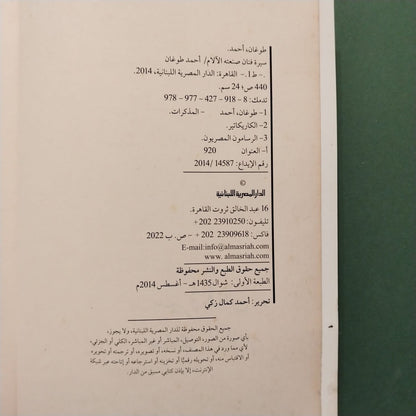 طوغان، أحمد.
سيرة فنان صنعته الآلام/ أحمد طوغان
.- ط1.- القاهرة: الدار المصرية اللبنانية، 2014.
440 ص؛ 24 سم.
تدمك: 8 - 918 - 427 - 977 - 978
1- طوغان، أحمد - المذكرات.
2- الكاريكاتير.
3- الرسامون المصريون.
أ- العنوان 920
رقم الإيداع: 14587 /2014
©
الدار المصرية اللبنانية
16 عبد الخالق ثروت القاهرة.
تليفون: 23910250 202 +
فاكس: 23909618 202 + - ص. ب 2022
E-mail:info@almasriah.com
www. almasriah.com
جميع حقوق الطبع والنشر محفوظة
الطبعة الأولى: شوال 1435هـ - أغسطس 2014م
تحرير: أحمد كمال زكي
جميع الحقوق محفوظة للدار المصرية اللبنانية، ولا يجوز،
بأي صورة من الصور، التوصيل، المباشر أو غير المباشر، الكلي أو الجزئي،
لأي مما ورد في هذا المصنف، أو نسخه، أو تصويره، أو ترجمته أو تحويره
أو الاقتباس منه، أو تحويله رقميًّا أو تخزينه أو استرجاعه أو إتاحته عبر شبكة
الإنترنت، إلا بإذن كتابي مسبق من الدار.